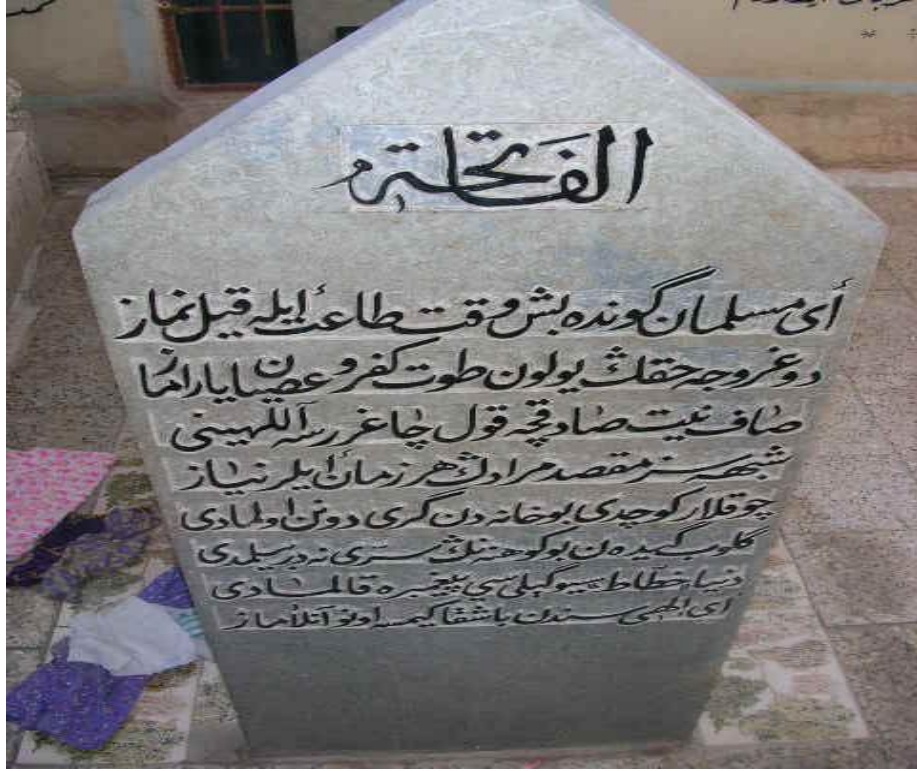 الفاتحة
أی مسلمان گونده بش وقت طاعت أیله قیل نماز
دوغروجه حقڭ یولون طوت کفر و عصیان ایاراماز
صاف نیت صادقچه قول چاغررسه آللهینی
شبهه سز مقصد مرادڭ هر زمان أیلر نیاز
چوقلار کوچدی بو خانه دن گری دونن اولمادی
گلوب گیده ن بو کوهنه نڭ سرّی نه در بیلمدی
دنیا سیوگیلی سی پیغمبره قالمادی
أی الهی سندن باشقا کیمسه اونو آنلاماز